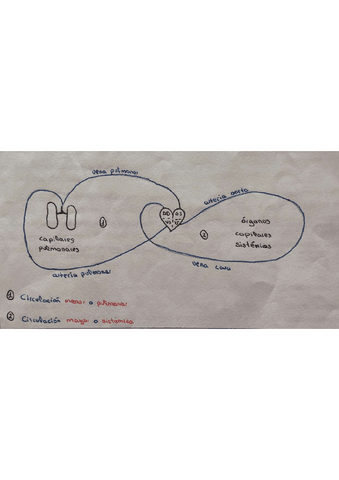 vena pulmonar
arteria aorta
①
capilares
pulmonares
②
órganos
capilares
sistémicos
arteria pulmonar
vena cava
① Circulación menor o pulmonar
② Circulación mayor o sistémica